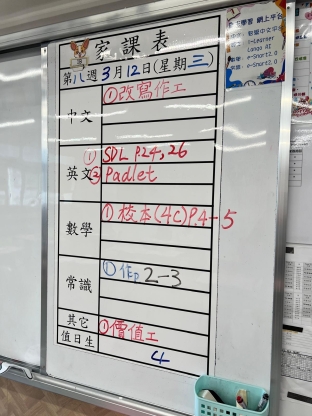 家課表
第八週3月12日(星期三)
中文
①改寫作工
英文
①SDL P.24,26
②Padlet
數學
①校本(4C)P.4-5
常識
①作P2-3
其它
①價值工
值日生
4
學習 網上平台
i-Learner
e-Smart2.0
e-Smart2.0